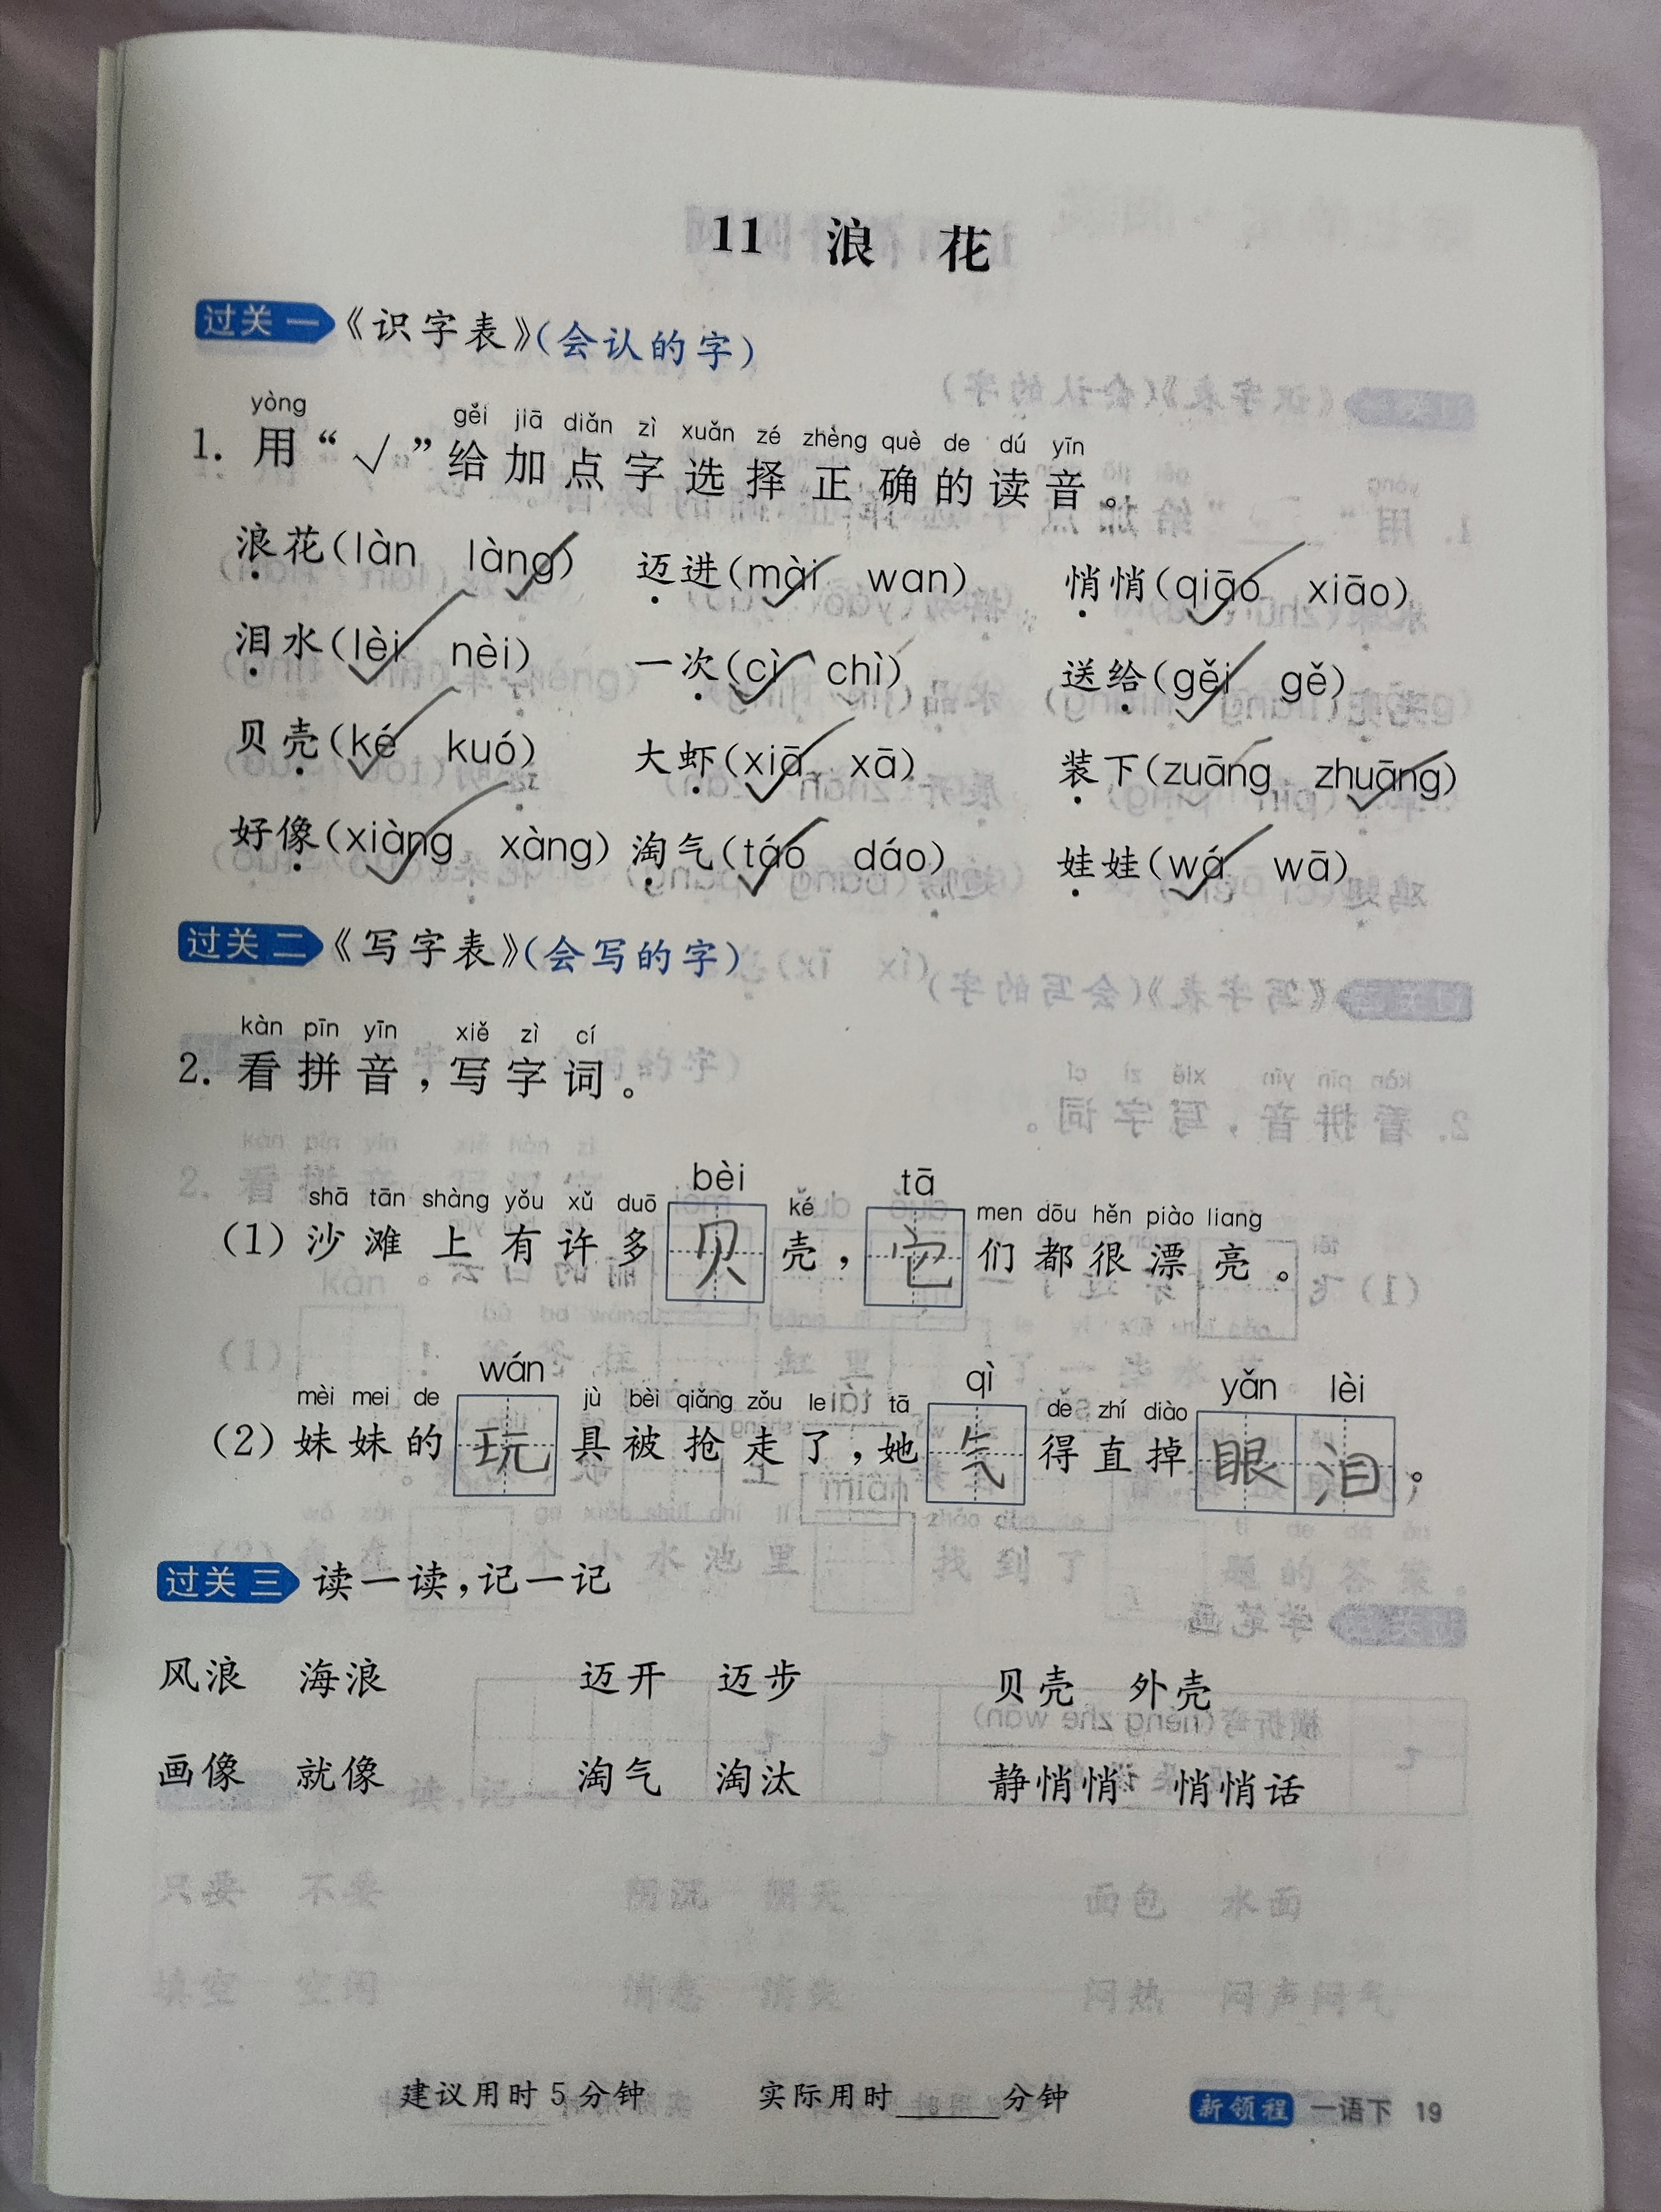 11 浪 花
过关一 《识字表》(会认的字)
yòng gěi jiā diǎn zì xuǎn zé zhèng què de dú yīn
1. 用“√”给加点字选择正确的读音。
浪花(làn làng✓) 迈进(mài✓ wan) 悄悄(qiāo✓ xiāo)
泪水(lèi✓ nèi) 一次(cì✓ chì) 送给(gěi✓ gě)
贝壳(ké✓ kuó) 大虾(xiā✓ xā) 装下(zuāng zhuāng✓)
好像(xiàng✓ xàng) 淘气(táo✓ dáo) 娃娃(wá✓ wā)
过关二 《写字表》(会写的字)
kàn pīn yīn xiě zì cí
2. 看拼音,写字词。
shā tān shàng yǒu xǔ duō bèi ké tā men dōu hěn piào liang
(1) 沙滩上有许多贝壳,它们都很漂亮。
mèi mei de wán jù bèi qiǎng zǒu le tā qì de zhí diào yǎn lèi
(2) 妹妹的玩具被抢走了,她气得直掉眼泪。
过关三 读一读,记一记
风浪 海浪 迈开 迈步 贝壳 外壳
画像 就像 淘气 淘汰 静悄悄 悄悄话
建议用时5分钟 实际用时____分钟 新领程 一语下 19